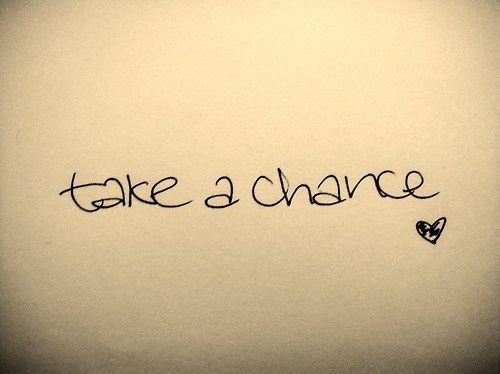 take a chance